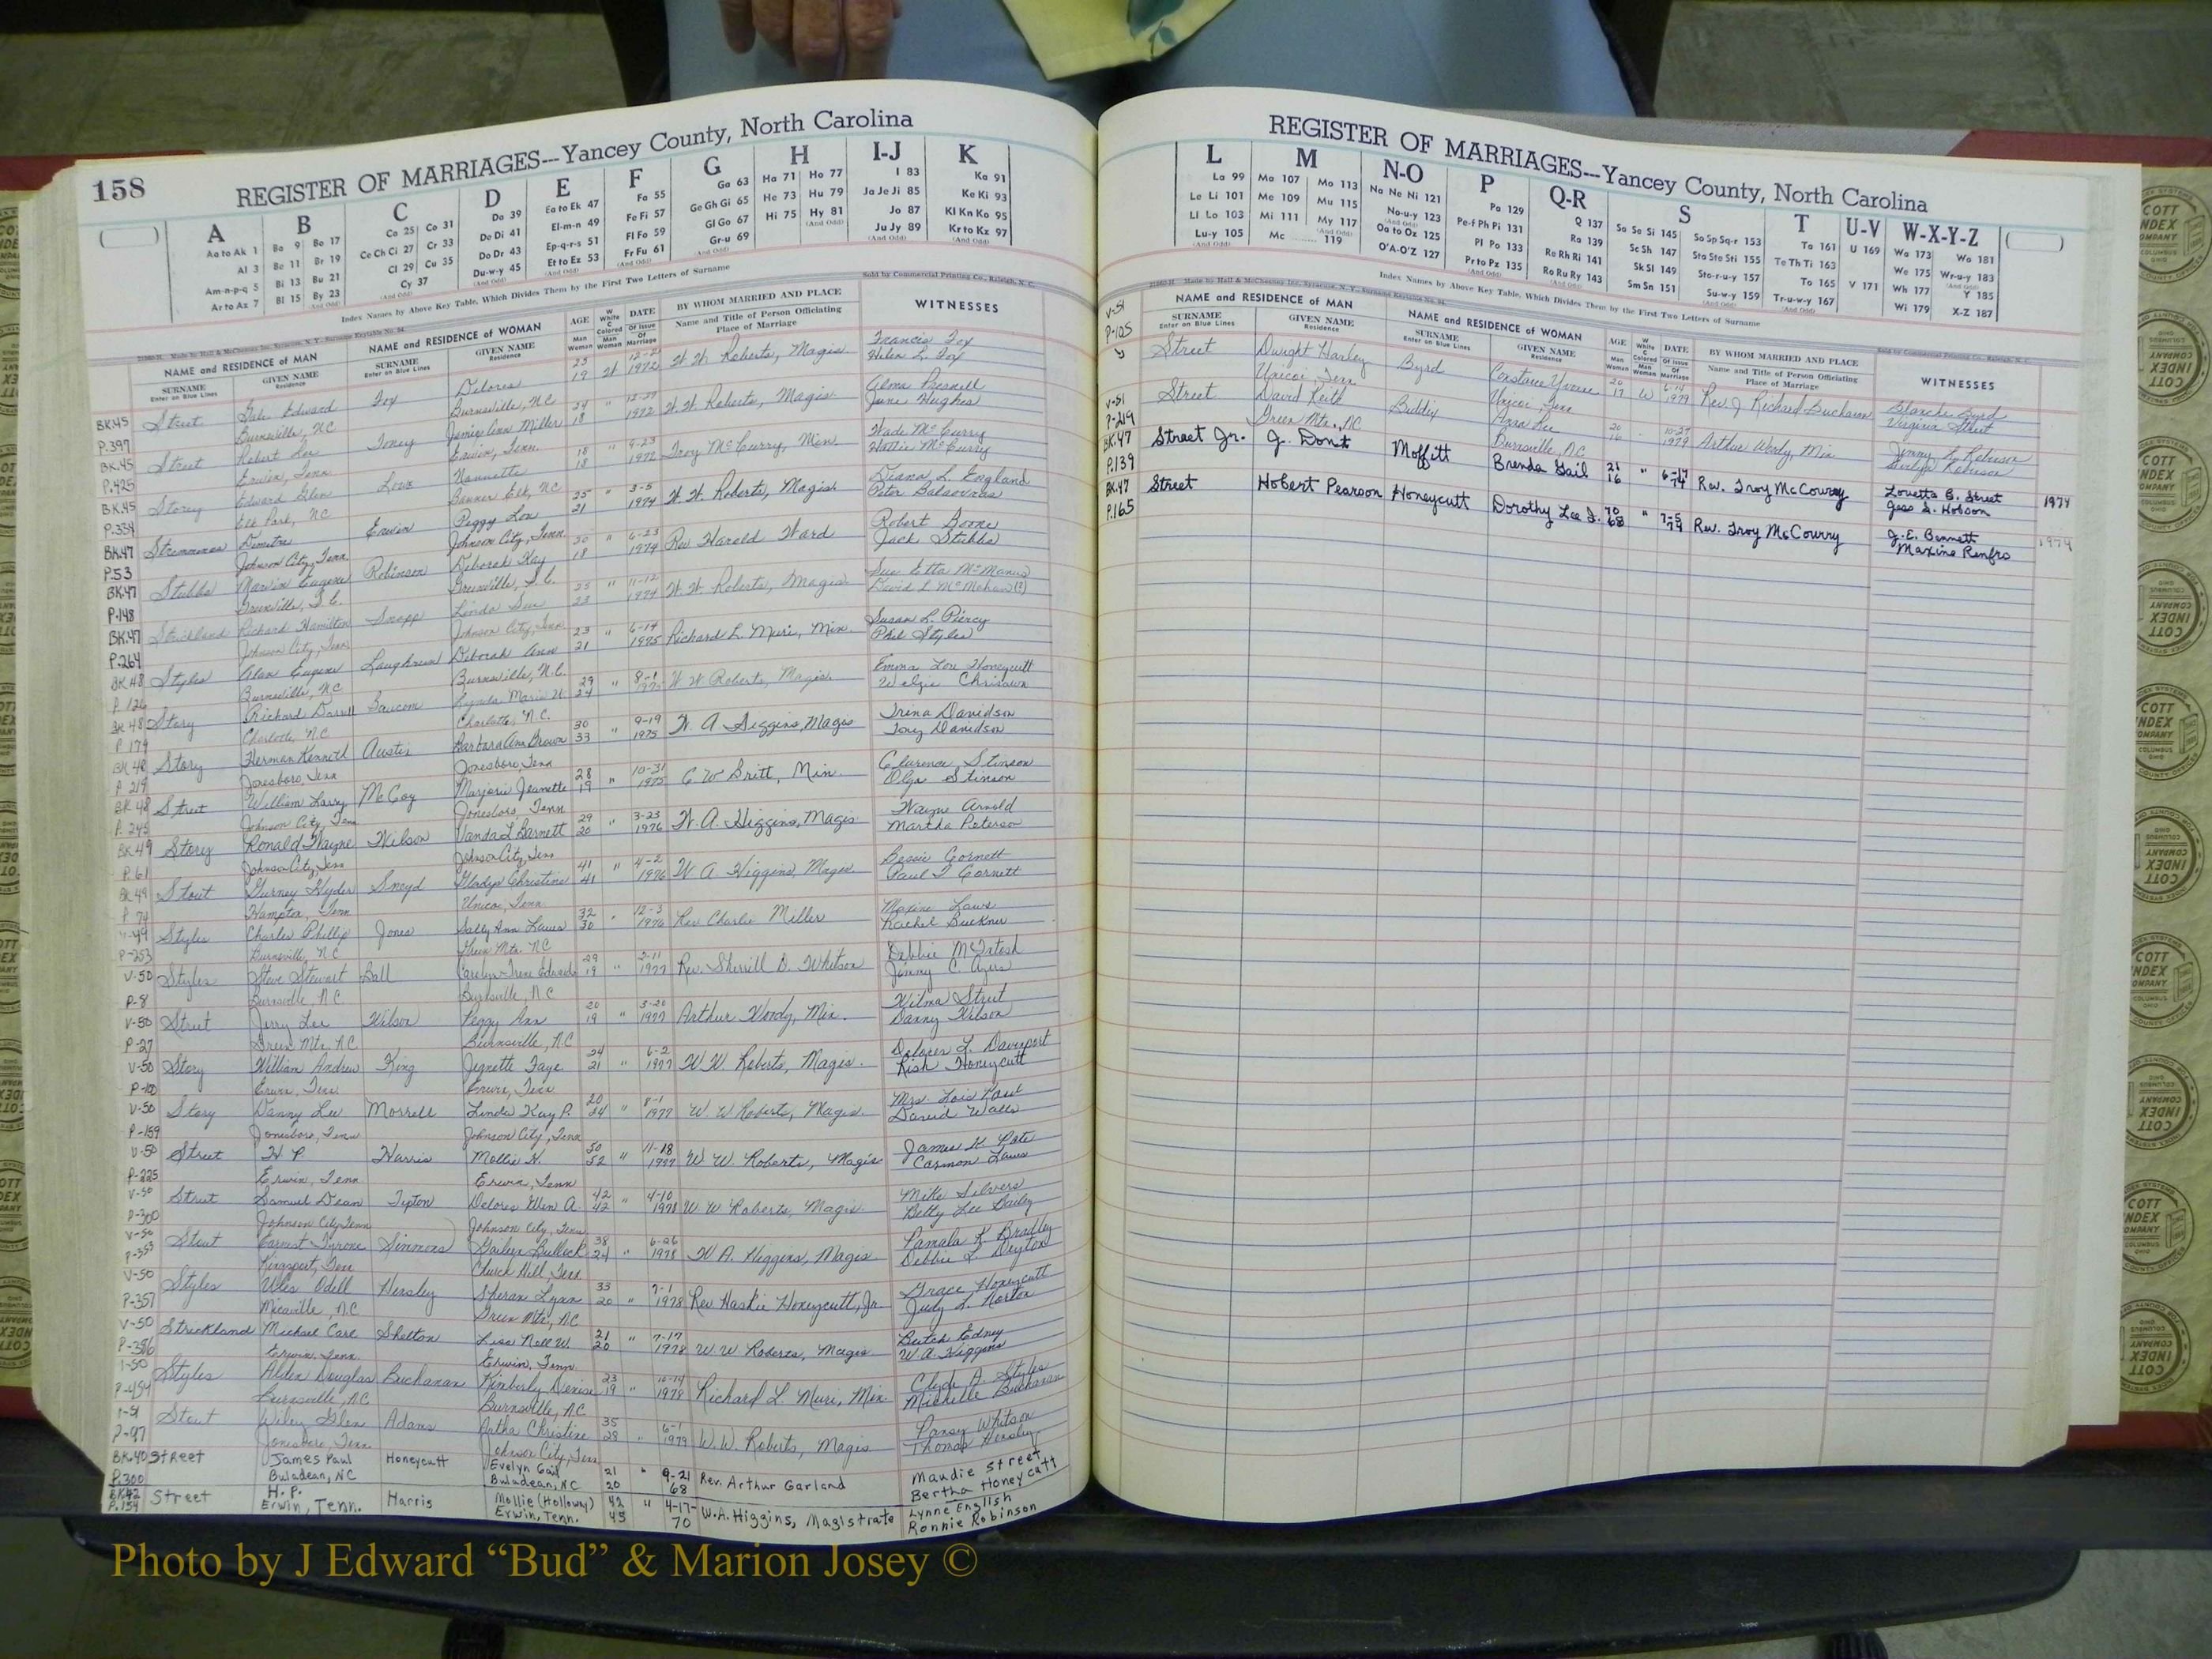 158
REGISTER OF MARRIAGES---Yancey County, North Carolina
A B C D E F G H I-J K
Aa to Ak 1 Ba 9 Bo 17 Ca 25 Co 31 Da 39 Ea to Ek 47 Fa 55 Ga 63 Ha 71 Ho 77 I 83 Ka 91
Al 3 Be 11 Br 19 Ce Ch Ci 27 Cr 33 De Di 41 El-m-n 49 Fe Fi 57 Ge Gh Gi 65 He 73 Hu 79 Ja Je Ji 85 Ke Ki 93
Am-n-p-q 5 Bi 13 Bu 21 Cl 29 Cu 35 Do Dr 43 Ep-q-r-s 51 Fl Fo 59 Gl Go 67 Hi 75 Hy 81 Jo 87 Kl Kn Ko 95
Ar to Az 7 Bl 15 By 23 Cy 37 Du-w-y 45 Et to Ez 53 Fr Fu 61 Gr-u 69 Ju Jy 89 Kr to Kz 97
Index Names by Above Key Table, Which Divides Them by the First Two Letters of Surname
Sold by Commercial Printing Co., Raleigh, N. C.
NAME and RESIDENCE of MAN NAME and RESIDENCE of WOMAN AGE DATE BY WHOM MARRIED AND PLACE WITNESSES
SURNAME GIVEN NAME SURNAME GIVEN NAME Name and Title of Person Officiating
Enter on Blue Lines Residence Enter on Blue Lines Residence Place of Marriage
BK45 Street Gale Edward Fox Delores 19 W 1972 W. W. Roberts, Magis. Francis Fox
P.397 Burnsville, NC Burnsville, NC Helen L. Fox
BK.45 Street Robert Lee Toney Jamie Ann Miller 18 " 1972 W. W. Roberts, Magis
P.425 Erwin, Tenn Erwin, Tenn. June Hughes
BK.45 Storey Edward Glen Nannette 18 18 " 9-23 1972 Troy McCurry, Min Wade McCurry
P.334 Elk Park, NC Banner Elk, NC Hattie McCurry
BK47 Demitre Erwin Peggy Lou 25 21 " 3-5 1974 W. W. Roberts, Magis. Diana L. England
P.53 Johnson City, Tenn. Johnson City, Tenn. Peter
BK.47 Stubbs Marvin Eugene Robinson Deborah Kay 18 " 6-23 1974 Rev Harold Ward Robert Boone
P.148 Greenville, S.C. Greenville, S.C. Jack Stubbs
BK.47 Strickland Richard Hamilton Snapp Linda Sue 23 " 11-12 1974 W. W. Roberts, Magis. Sue Etta McManus
P.264 Johnson City, Tenn Johnson City, Tenn David L McMahan (?)
BK.48 Styles Alan Eugene Laughrun Deborah Ann 23 21 " 6-14 1975 Richard L. Muri, Min. Susan L. Piercy
P. 126 Burnsville, NC Burnsville, N.C. Phil Styles
BK 48 Story Richard Darrell Baucom Lynda Maria 29 24 " 8-1 W W Roberts, Magis. Emma Lou Honeycutt
P 179 Charlotte, N.C. Charlotte, N.C. Welzie Chrisawn
BK 48 Story Herman Kenneth Austin Barbara Ann Brown 30 33 " 9-19 1975 W. A. Higgins, Magis Trina Davidson
P 219 Jonesboro, Tenn Jonesboro, Tenn Tony Davidson
BK 48 Street William Larry McCoy Marjorie Jeanette 28 19 " 10-31 1975 C W Britt, Min. Clarence Stinson
P. 245 Johnson City, Tenn Jonesboro, Tenn Olga Stinson
BK 49 Story Ronald Wayne Wilson Vanda L Barnett 29 20 " 3-23 1976 W. A. Higgins, Magis Wayne Arnold
P. 61 Johnson City, Tenn Johnson City, Tenn Martha Peterson
BK 49 Stout Gurney Hyder Sneyd Gladys Christine 41 41 " 4-2 1976 W A Higgins, Magis Bessie Cornett
P 74 Hampton, Tenn Unicoi, Tenn Paul T Cornett
V-49 Styles Charles Phillip Jones Sally Ann Laws 32 30 " 12-3 1976 Rev Charlie Miller Maxine Laws
P-253 Burnsville, NC Green Mtn. NC Rachel Buckner
V-50 Styles Steve Stewart Ball Carolyn Irene Edwards 29 19 " 2-11 1977 Rev. Sherrill B. Whitson Debbie McIntosh
P-8 Burnsville, NC Burnsville, NC Jimmy C. Ayers
V-50 Street Jerry Lee Wilson Peggy Ann 20 19 " 3-20 1977 Arthur Woody, Min. Wilma Street
P-27 Green Mtn. NC Burnsville, NC Danny Wilson
V-50 Story William Andrew King Jeanette Faye 24 21 " 6-2 1977 W. W. Roberts, Magis. Delores L. Davenport
P-100 Erwin, Tenn. Erwin, Tenn Rish Honeycutt
V-50 Story Danny Lee Morrell Linda Kay P. 20 24 " 8-1 1977 W W Roberts, Magis Mrs. Lois Paul
P-159 Jonesboro, Tenn Johnson City, Tenn David Walls
V-50 Street H P Harris Mollie H. 50 52 " 11-18 1977 W W. Roberts, Magis James H. Pate
P-225 Erwin, Tenn Erwin, Tenn Carmon Laws
V-50 Street Samuel Dean Tipton Delores Glen A. 42 42 " 4-10 1978 W W Roberts, Magis. Mike Silvers
P-300 Johnson City, Tenn Johnson City, Tenn Betty Lee Bailey
V-50 Stout Earnest Tyrone Simmons Bullock 38 24 " 6-26 1978 W. A. Higgins, Magis Pamala K Bradley
P-353 Kingsport, Tenn Church Hill, Tenn. Debbie L Deyton
V-50 Styles Odell Hensley Sheran Lynn 33 20 " 7-1 1978 Rev Haskie Honeycutt, Jr. Grace Honeycutt
P-357 Micaville, NC Green Mtn, NC Judy L. Norton
V-50 Strickland Michael Carl Shelton Lisa Nell W. 21 20 " 7-17 1978 W W Roberts, Magis Butch Edney
Erwin, Tenn. Erwin, Tenn. W. A. Higgins
Styles Alden Douglas Buchanan Kimberly Denise 23 19 " 10-14 1978 Richard L. Muri, Min. Clyde A. Styles
P-454 Burnsville, NC Burnsville, NC Michelle Buchanan
Stout Wiley Glen Adams Artha Christine 35 28 " 6-1 1979 W. W. Roberts, Magis Pansy Whitson
P-97 Jonesboro, Tenn. Johnson City, Tenn Thomas Hensley
BK.40 Street James Paul Honeycutt Evelyn Gail 21 " 9-21 Rev. Arthur Garland Maudie Street
P.300 Buladean, NC Buladean, NC 20 68 Bertha Honeycutt
BK42 Street H. P. Harris Mollie (Holloway) 42 " 4-17- W.A. Higgins, Magistrate Lynne English
P.154 Erwin, Tenn. Erwin, Tenn. 45 70 Ronnie Robinson
REGISTER OF MARRIAGES---Yancey County, North Carolina
L M N-O P Q-R S T U-V W-X-Y-Z
La 99 Ma 107 Mo 113 Na Ne Ni 121 Pa 129 Q 137 Sa Se Si 145 So Sp Sq-r 153 Ta 161 U 169 Wa 173 Wo 181
Le Li 101 Me 109 Mu 115 No-u-y 123 Pe-f Ph Pi 131 Ra 139 Sc Sh 147 Sta Ste Sti 155 Te Th Ti 163 We 175 Wr-u-y 183
Ll Lo 103 Mi 111 My 117 Oa to Oz 125 Pl Po 133 Re Rh Ri 141 Sk Sl 149 Sto-r-u-y 157 To 165 V 171 Wh 177 Y 185
Lu-y 105 Mc 119 O'A-O'Z 127 Pr to Pz 135 Ro Ru Ry 143 Sm Sn 151 Su-w-y 159 Tr-u-w-y 167 Wi 179 X-Z 187
Index Names by Above Key Table, Which Divides Them by the First Two Letters of Surname
NAME and RESIDENCE of MAN NAME and RESIDENCE of WOMAN AGE DATE BY WHOM MARRIED AND PLACE WITNESSES
SURNAME GIVEN NAME SURNAME GIVEN NAME Name and Title of Person Officiating
Enter on Blue Lines Residence Enter on Blue Lines Residence Place of Marriage
V-51 Street Dwight Harley Byrd Constance Yvonne 20 17 W 6-14 1979 Rev. J Richard Buchanan Blanche Byrd
P-105 Unicoi, Tenn Unicoi, Tenn Virginia Street
V-51 Street David Keith Biddix 20 16 " 1979 Arthur Woody, Min Jimmy
P-219 Green Mtn., NC Burnsville, NC
BK.47 Street Jr. G. Donit Moffitt Brenda Gail 21 16 " 6-14 74 Rev. Troy McCourry Louetta B. Street 1974
P.139 Gess S. Hobson
BK.47 Street Hobert Pearson Honeycutt Dorothy Lee 70 68 " 7-5 74 Rev. Troy McCourry J. E. Bennett 1974
P.165 Maxine Renfro
COTT
INDEX
COMPANY
COLUMBUS
OHIO
Photo by J Edward “Bud” & Marion Josey ©